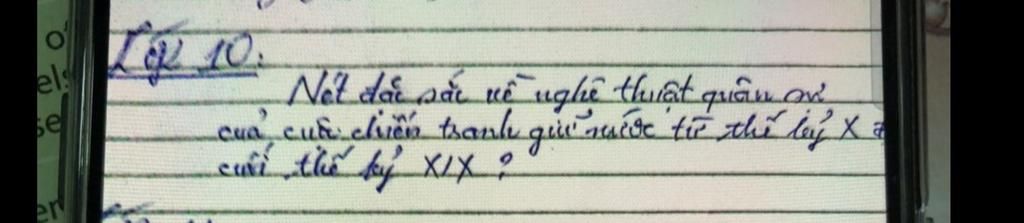 o
els
se
er
Lớp 10:
Nét đặc sắc về nghệ thuật quân sự
của cuộc chiến tranh giữ nước từ thế kỷ X
cuối thế kỷ XIX ?